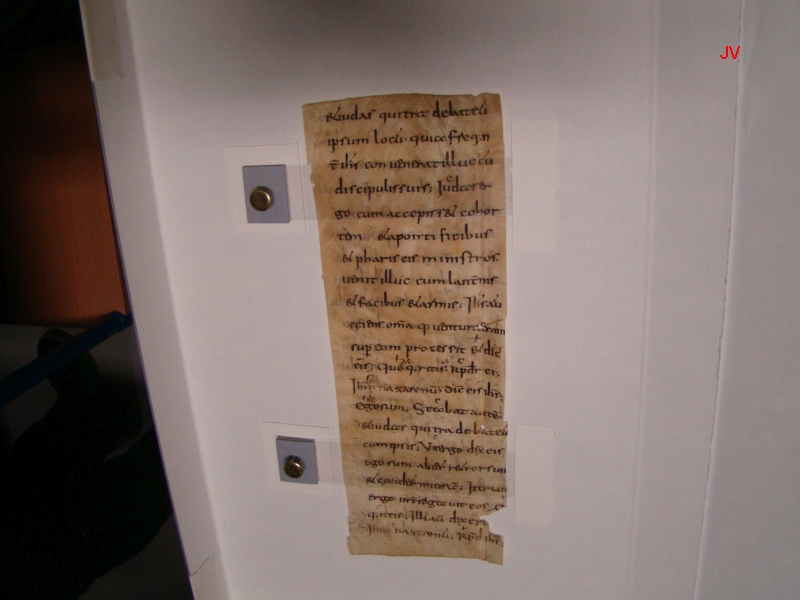 JV
& iudas qui trade debat eū
ipsum locū. quia freqn
t ihs convenerat illuc cū
discipulis suis; Iudas er
go cum accepisset cohor
tem. & a pontificibus
& phariseis ministros.
venit illuc cum lanternis
& facibus & armis; Ihs au
sciens oma q ventura erant
sup eum processit & dic
eis; Quē q ritis; Rpdr ei;
Ihm nazarenū; dic eis ihs;
Ego sum; Stabat aute
& iudas qui tradebat eū
cum ipsis; Ut ergo dix eis
ego sum abier retrorsum
& cecider in terrā; Iterum
ergo interrogavit eos.
q ritis; Illi au dixer
Ihm nazarenū; Rpd ihs